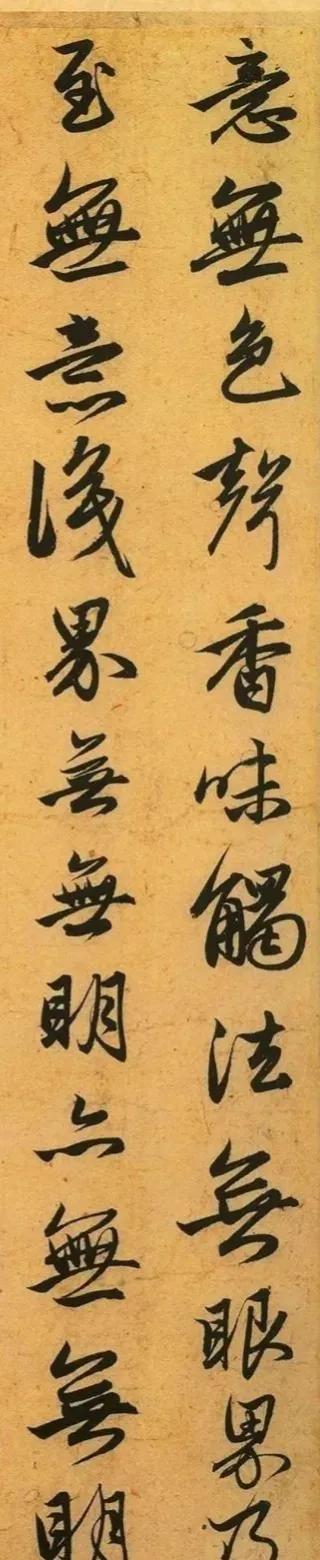 意無色聲香味觸法無眼界乃
至無意識界無無明亦無無明